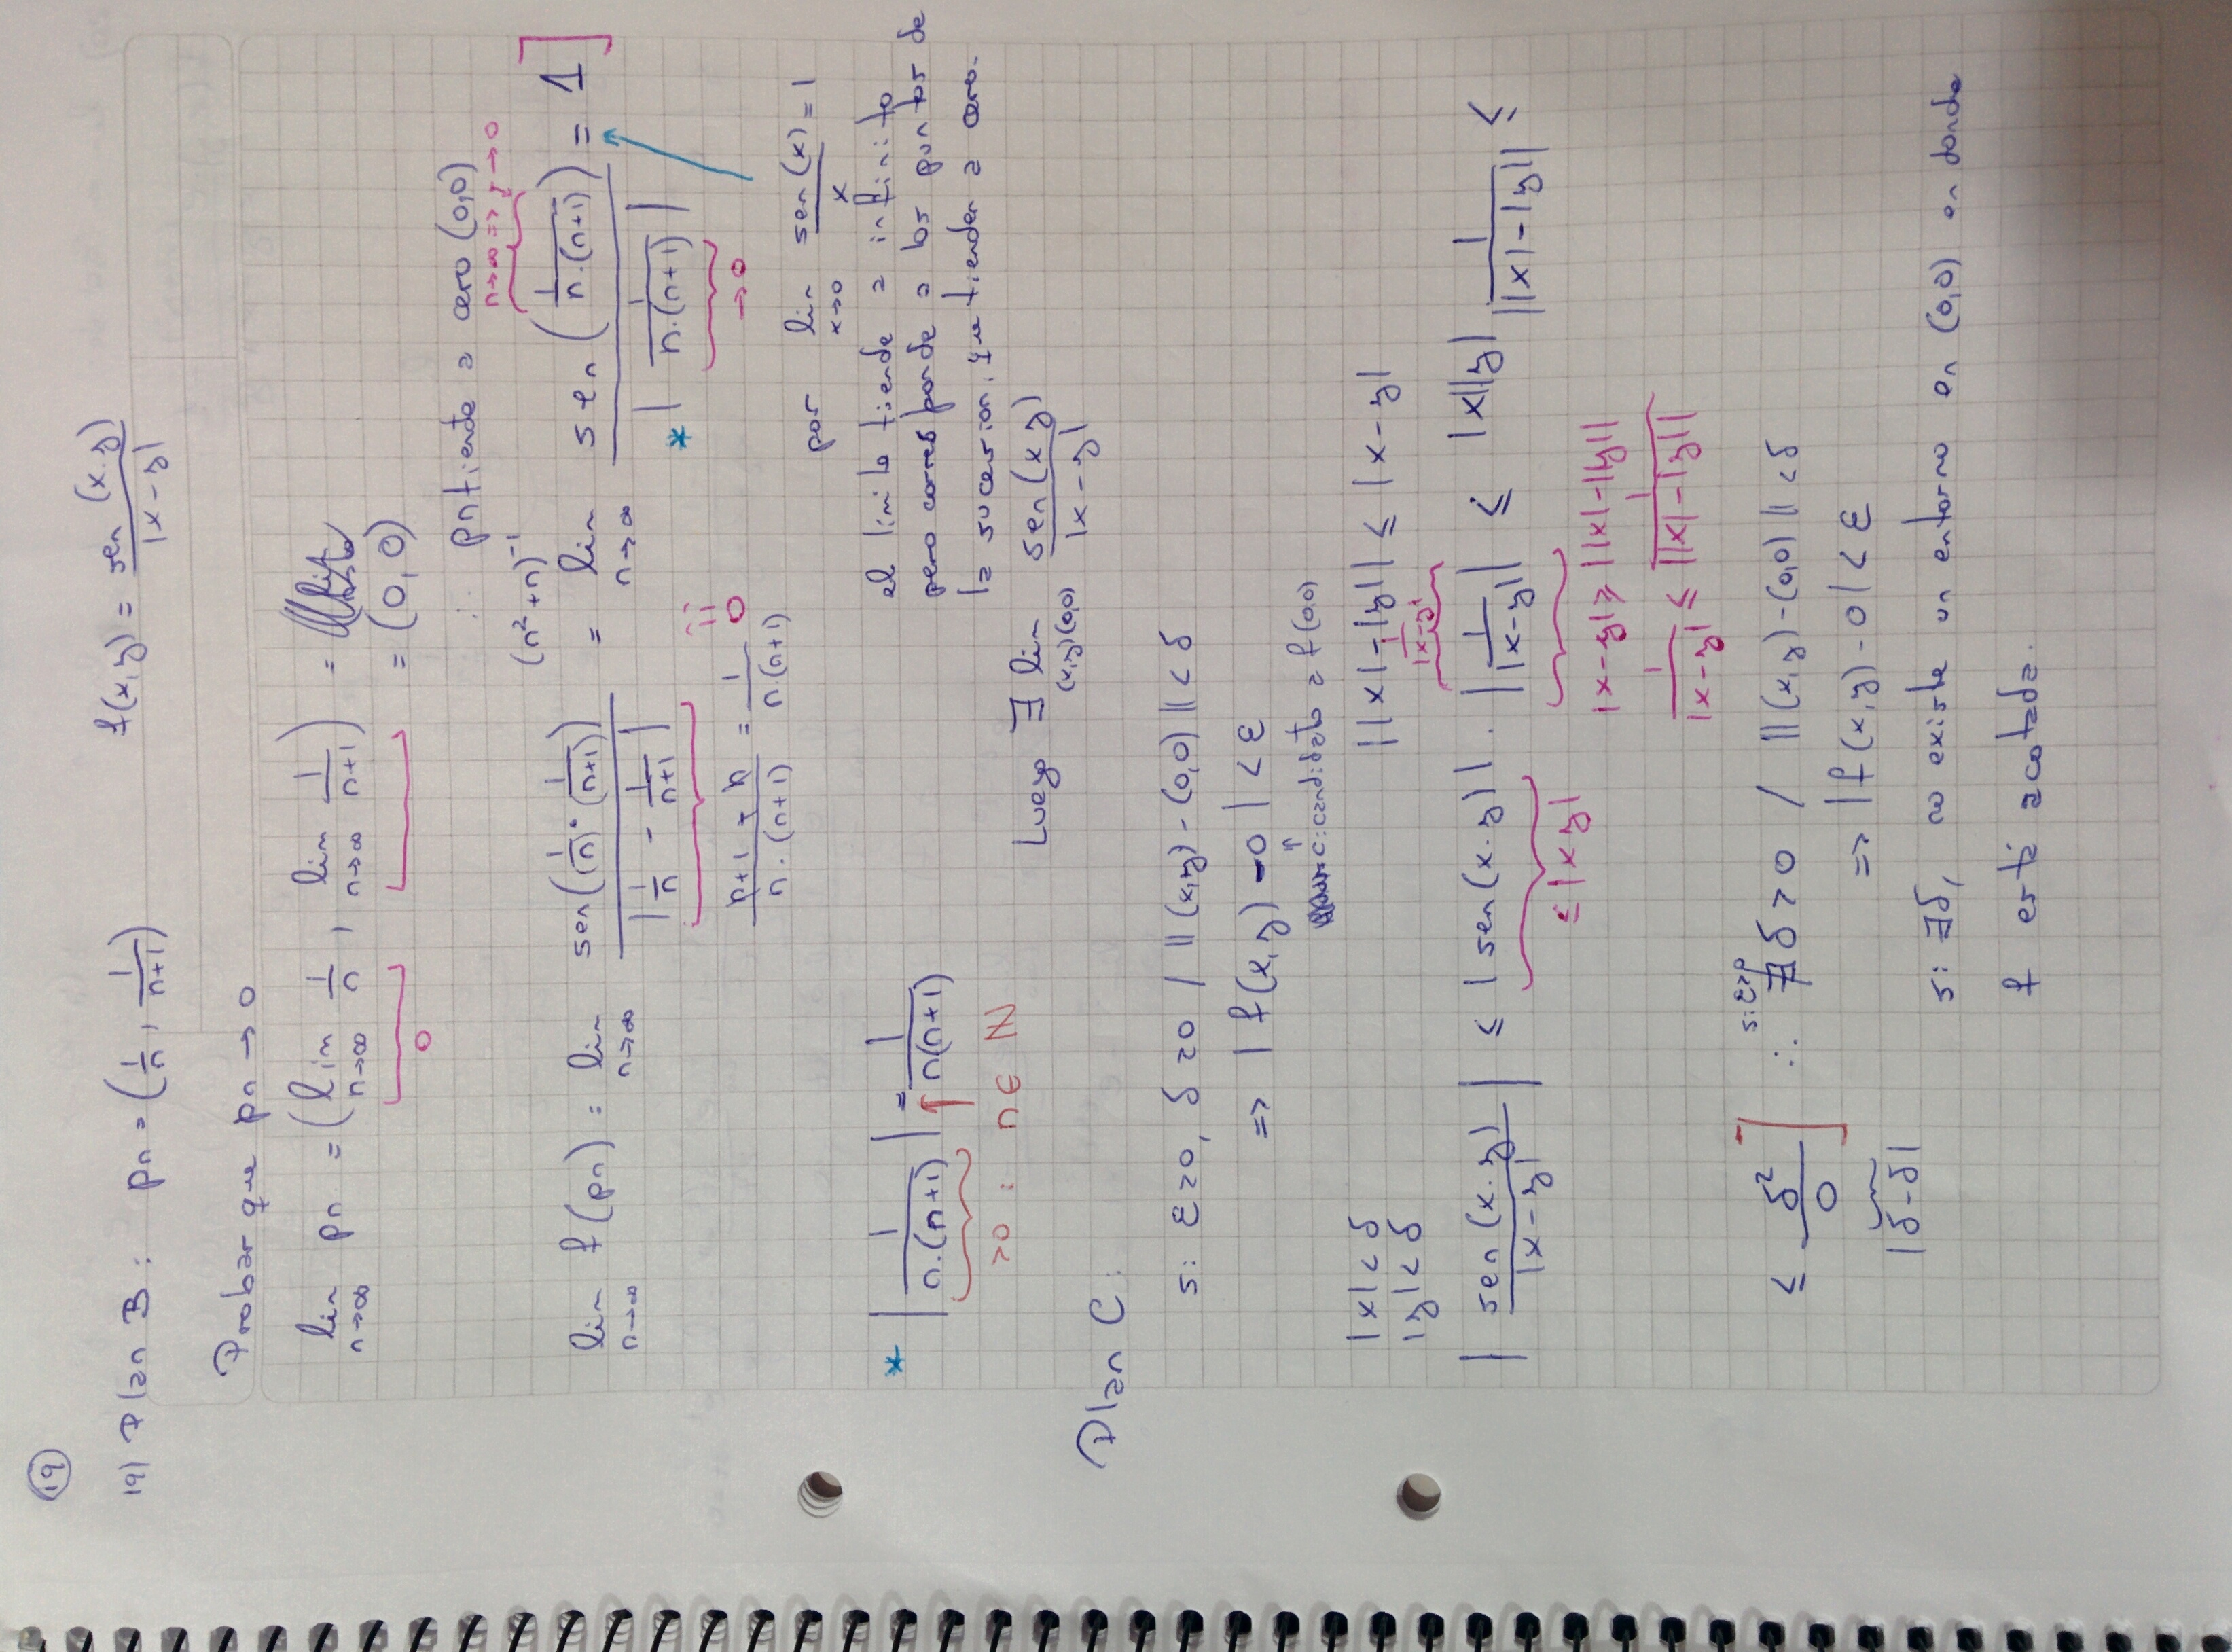 19
19) Plan B: pn = (1/n, 1/(n+1)) f(x,y) = sen(x.y)/|x-y|
Probar que pn → 0
lim n→∞ pn = (lim n→∞ 1/n, lim n→∞ 1/(n+1)) =
0
= (0,0)
∴ pn tiende a cero (0,0)
n→∞ => y→0
(n²+n)⁻¹
lim n→∞ f(pn) = lim n→∞ sen((1/n)·(1/(n+1)))/|1/n - 1/(n+1)| = lim n→∞ sen(1/(n.(n+1)))/|1/(n.(n+1))| = 1]
*
(n+1-n)/(n.(n+1)) = 1/(n.(n+1)) 0 →0
por lim x→0 sen(x)/x = 1
* |1/(n.(n+1))| = 1/(n(n+1))
>0 : n∈ℕ
el límite tiende a infinito
pero corresponde a los puntos de
la sucesion, que tienden a cero.
Luego ∃ lim (x,y)(0,0) sen(xy)/|x-y|
Plan C:
si ε>0, δ>0 / ||(x,y)-(0,0)||<δ
=> |f(x,y)-0|<ε
candidato a f(0,0)
|x|<δ
|y|<δ
||x|-|y|| ≤ |x-y|
1/|x-y|
|sen(x.y)/|x-y|| ≤ |sen(x.y)|.|1/|x-y|| ≤ |x||y| 1/||x|-|y|| ≤
≤|xy|
|x-y| ≥ ||x|-|y||
1/|x-y| ≤ 1/||x|-|y||
si ε>0
≤ δ²/0] ∴ ∄ δ>0 / ||(x,y)-(0,0)||<δ
|δ-δ|
=> |f(x,y)-0|<ε
si ∄δ, no existe un entorno en (0,0) en donde
f está acotada.